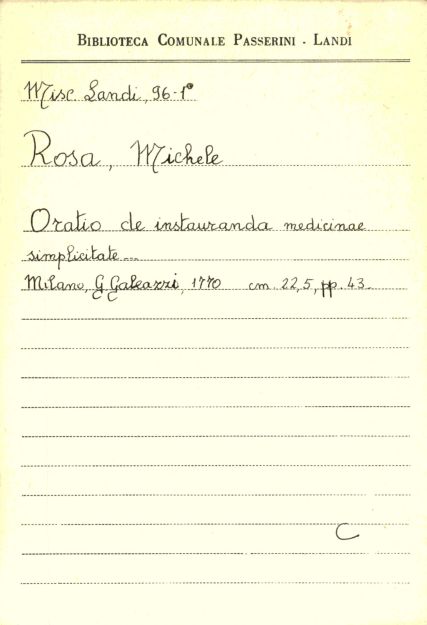 BIBLIOTECA COMUNALE PASSERINI - LANDI
Misc. Landi, 96-1°
Rosa, Michele
Oratio de instauranda medicinae
simplicitate...
Milano, G. Galeazzi, 1770 cm. 22,5, pp. 43.
C